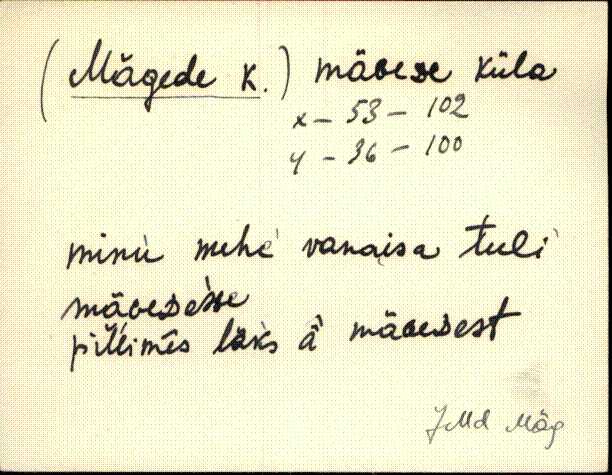 (Mägede k.) mävese küla
x – 53 – 102
y – 36 – 100
minu mehe vanaisa tuli
mävedesse
pillimìes läks ä mävedest
JMd Mäg